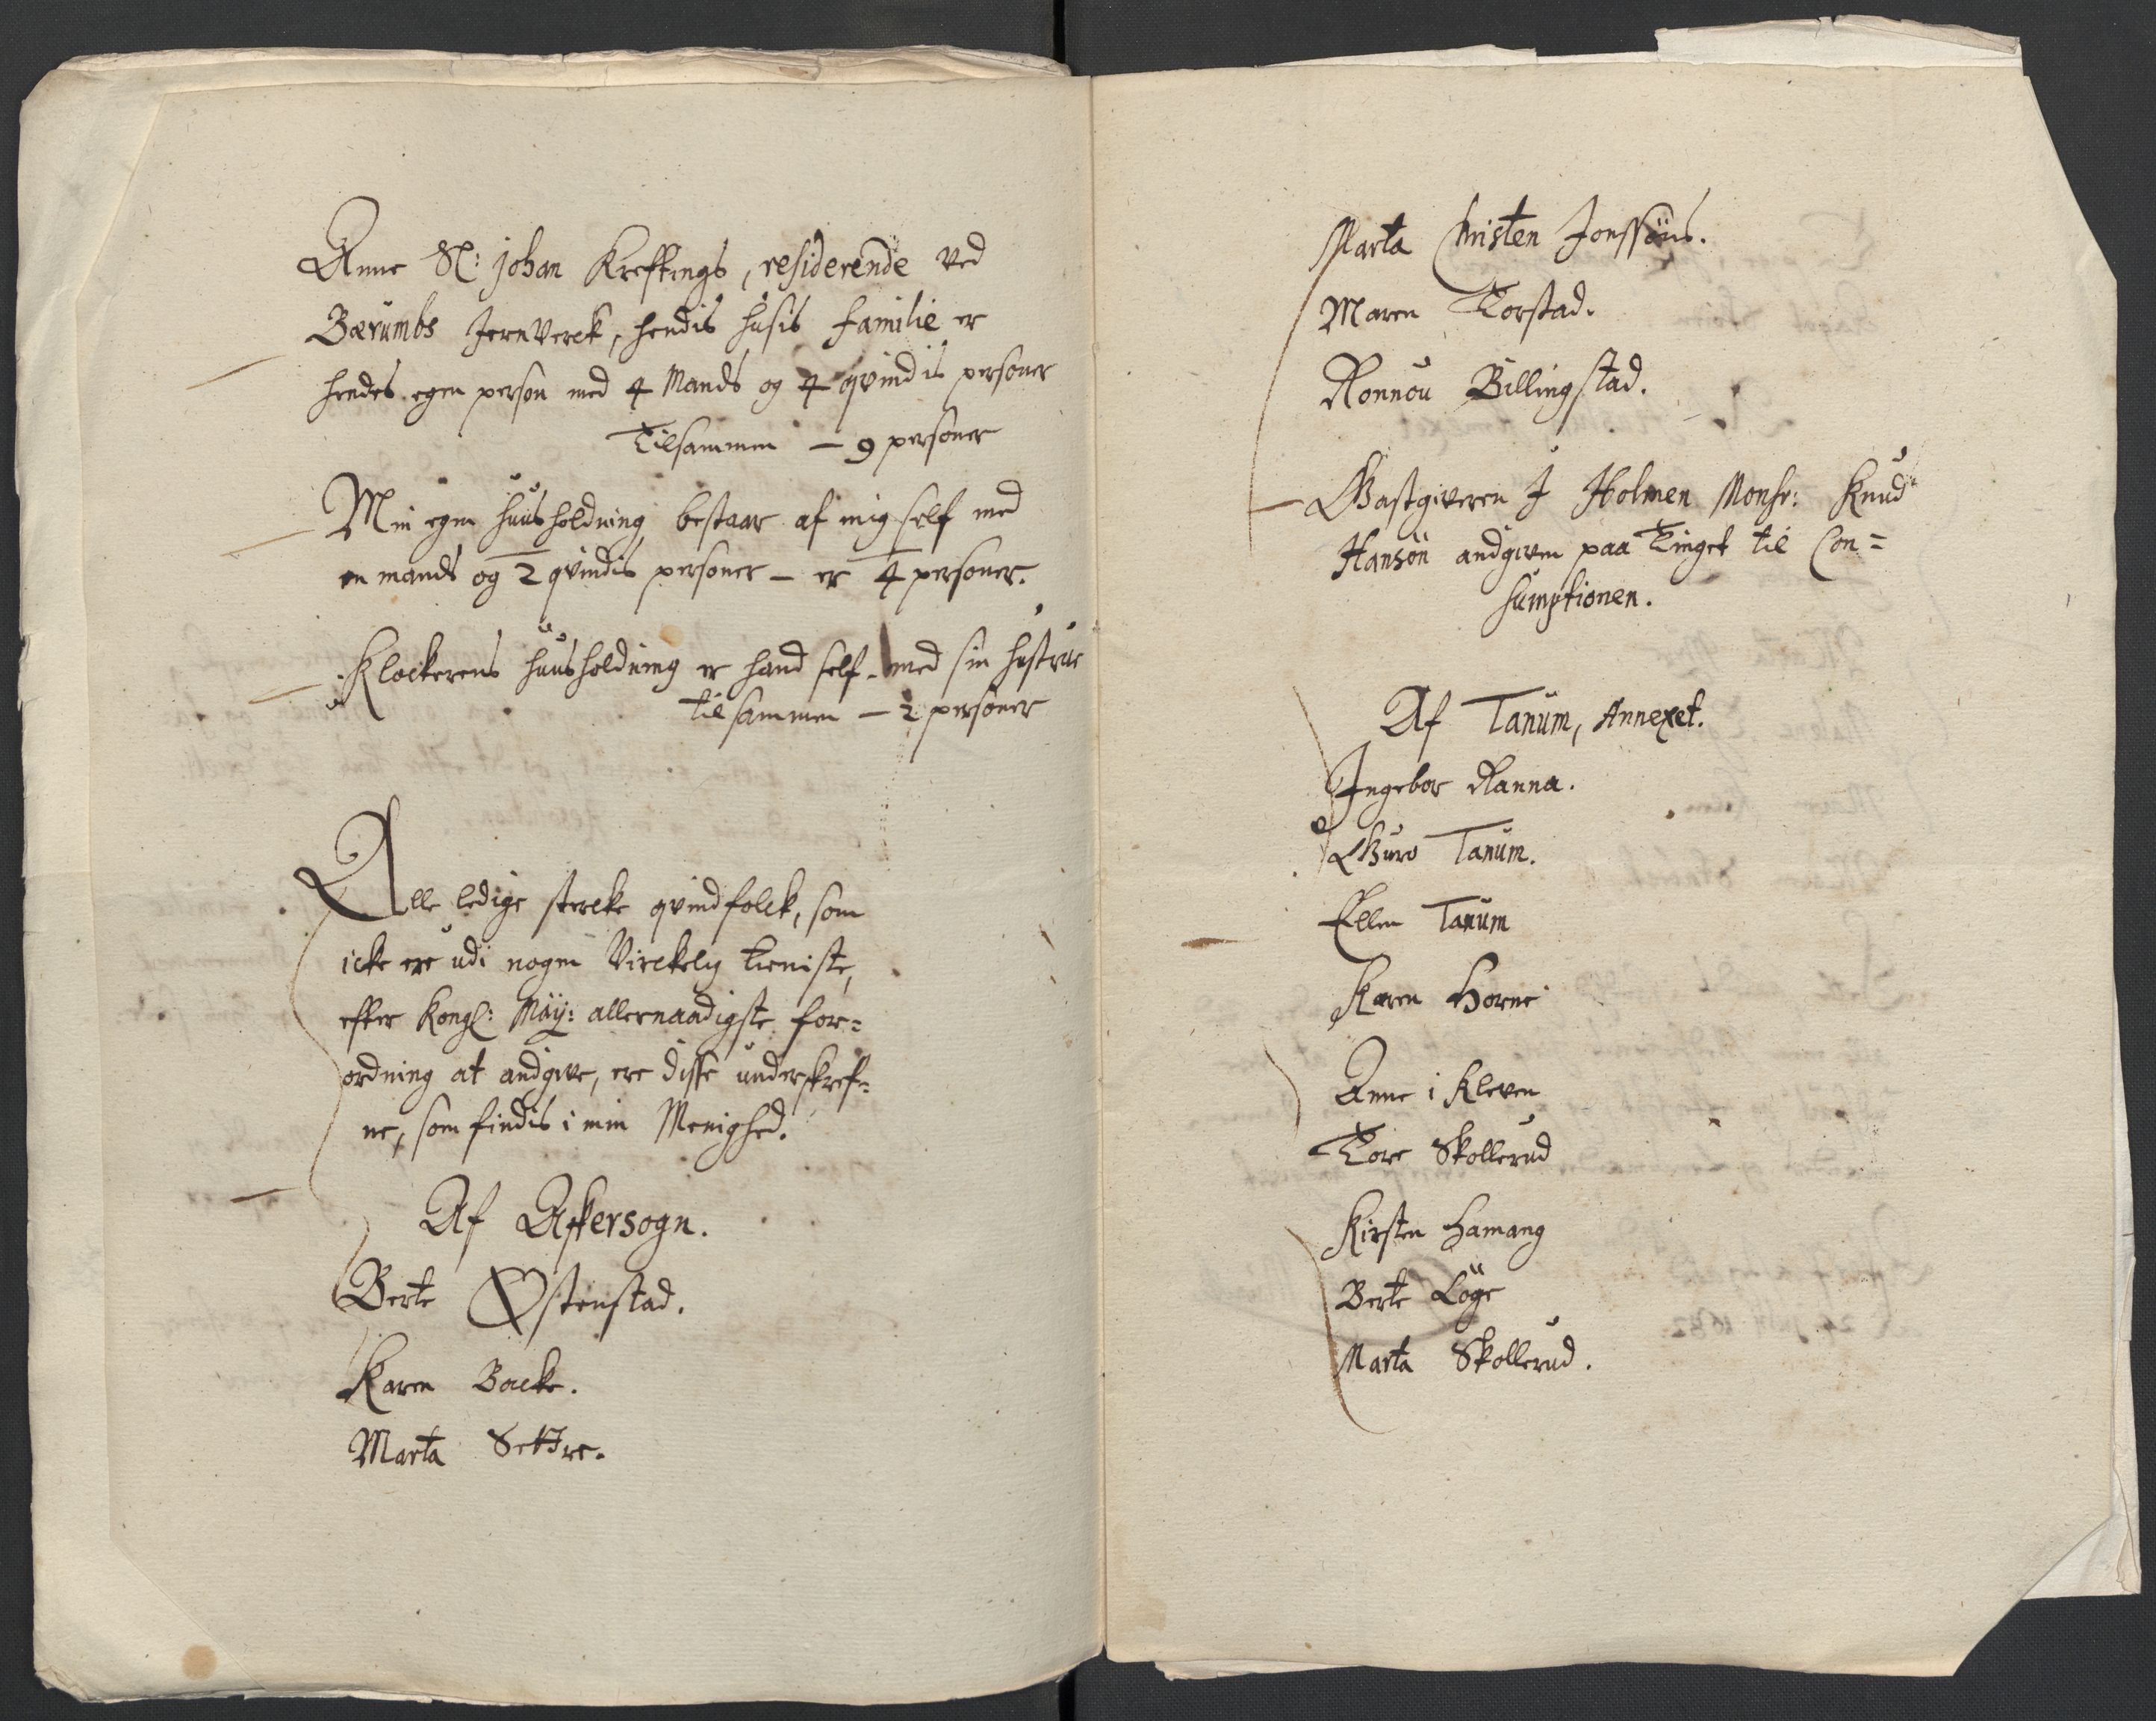 Anne Sl: Johan Kreftings, residerende ved
Bærumbs JernVerck, hendis husis familie er
hendes egen person med 4 Mands og 4 qvindis personer
Tilsammen – 9 personer
Min egen huusholdning bestaar af mig self med
en mands og 2 qvindis personer – er 4 personer.
Klockerens huusholdning er hand self med sin hustrue
tilsammen – 2 personer
Alle ledige stercke qvindfolck, som
icke ere udi nogen Virckelig tieniste,
efter Kongl: Maÿ: allernaadigste for=
ordning at andgive, ere disse underskref=
ne, som findis i min Menighed.
Af Askersogn.
Berte Østenstad.
Karen Backe.
Marta Settre.
Marta Christen Jonssöns.
Maren Torstad.
Ronnou Billingstad.
Gastgiveren J Holmen Monsr: Knud
Hansön andgiven paa Tinget til Con=
sumptionen.
Af Tanum, Annexet.
Ingebor Ranna.
Guro Tanum.
Ellen Tanum
Karen Horne
Anne i Kleven
Tore Skollerud
Kirsten Hamang
Berte Löge
Marta Skollerud.